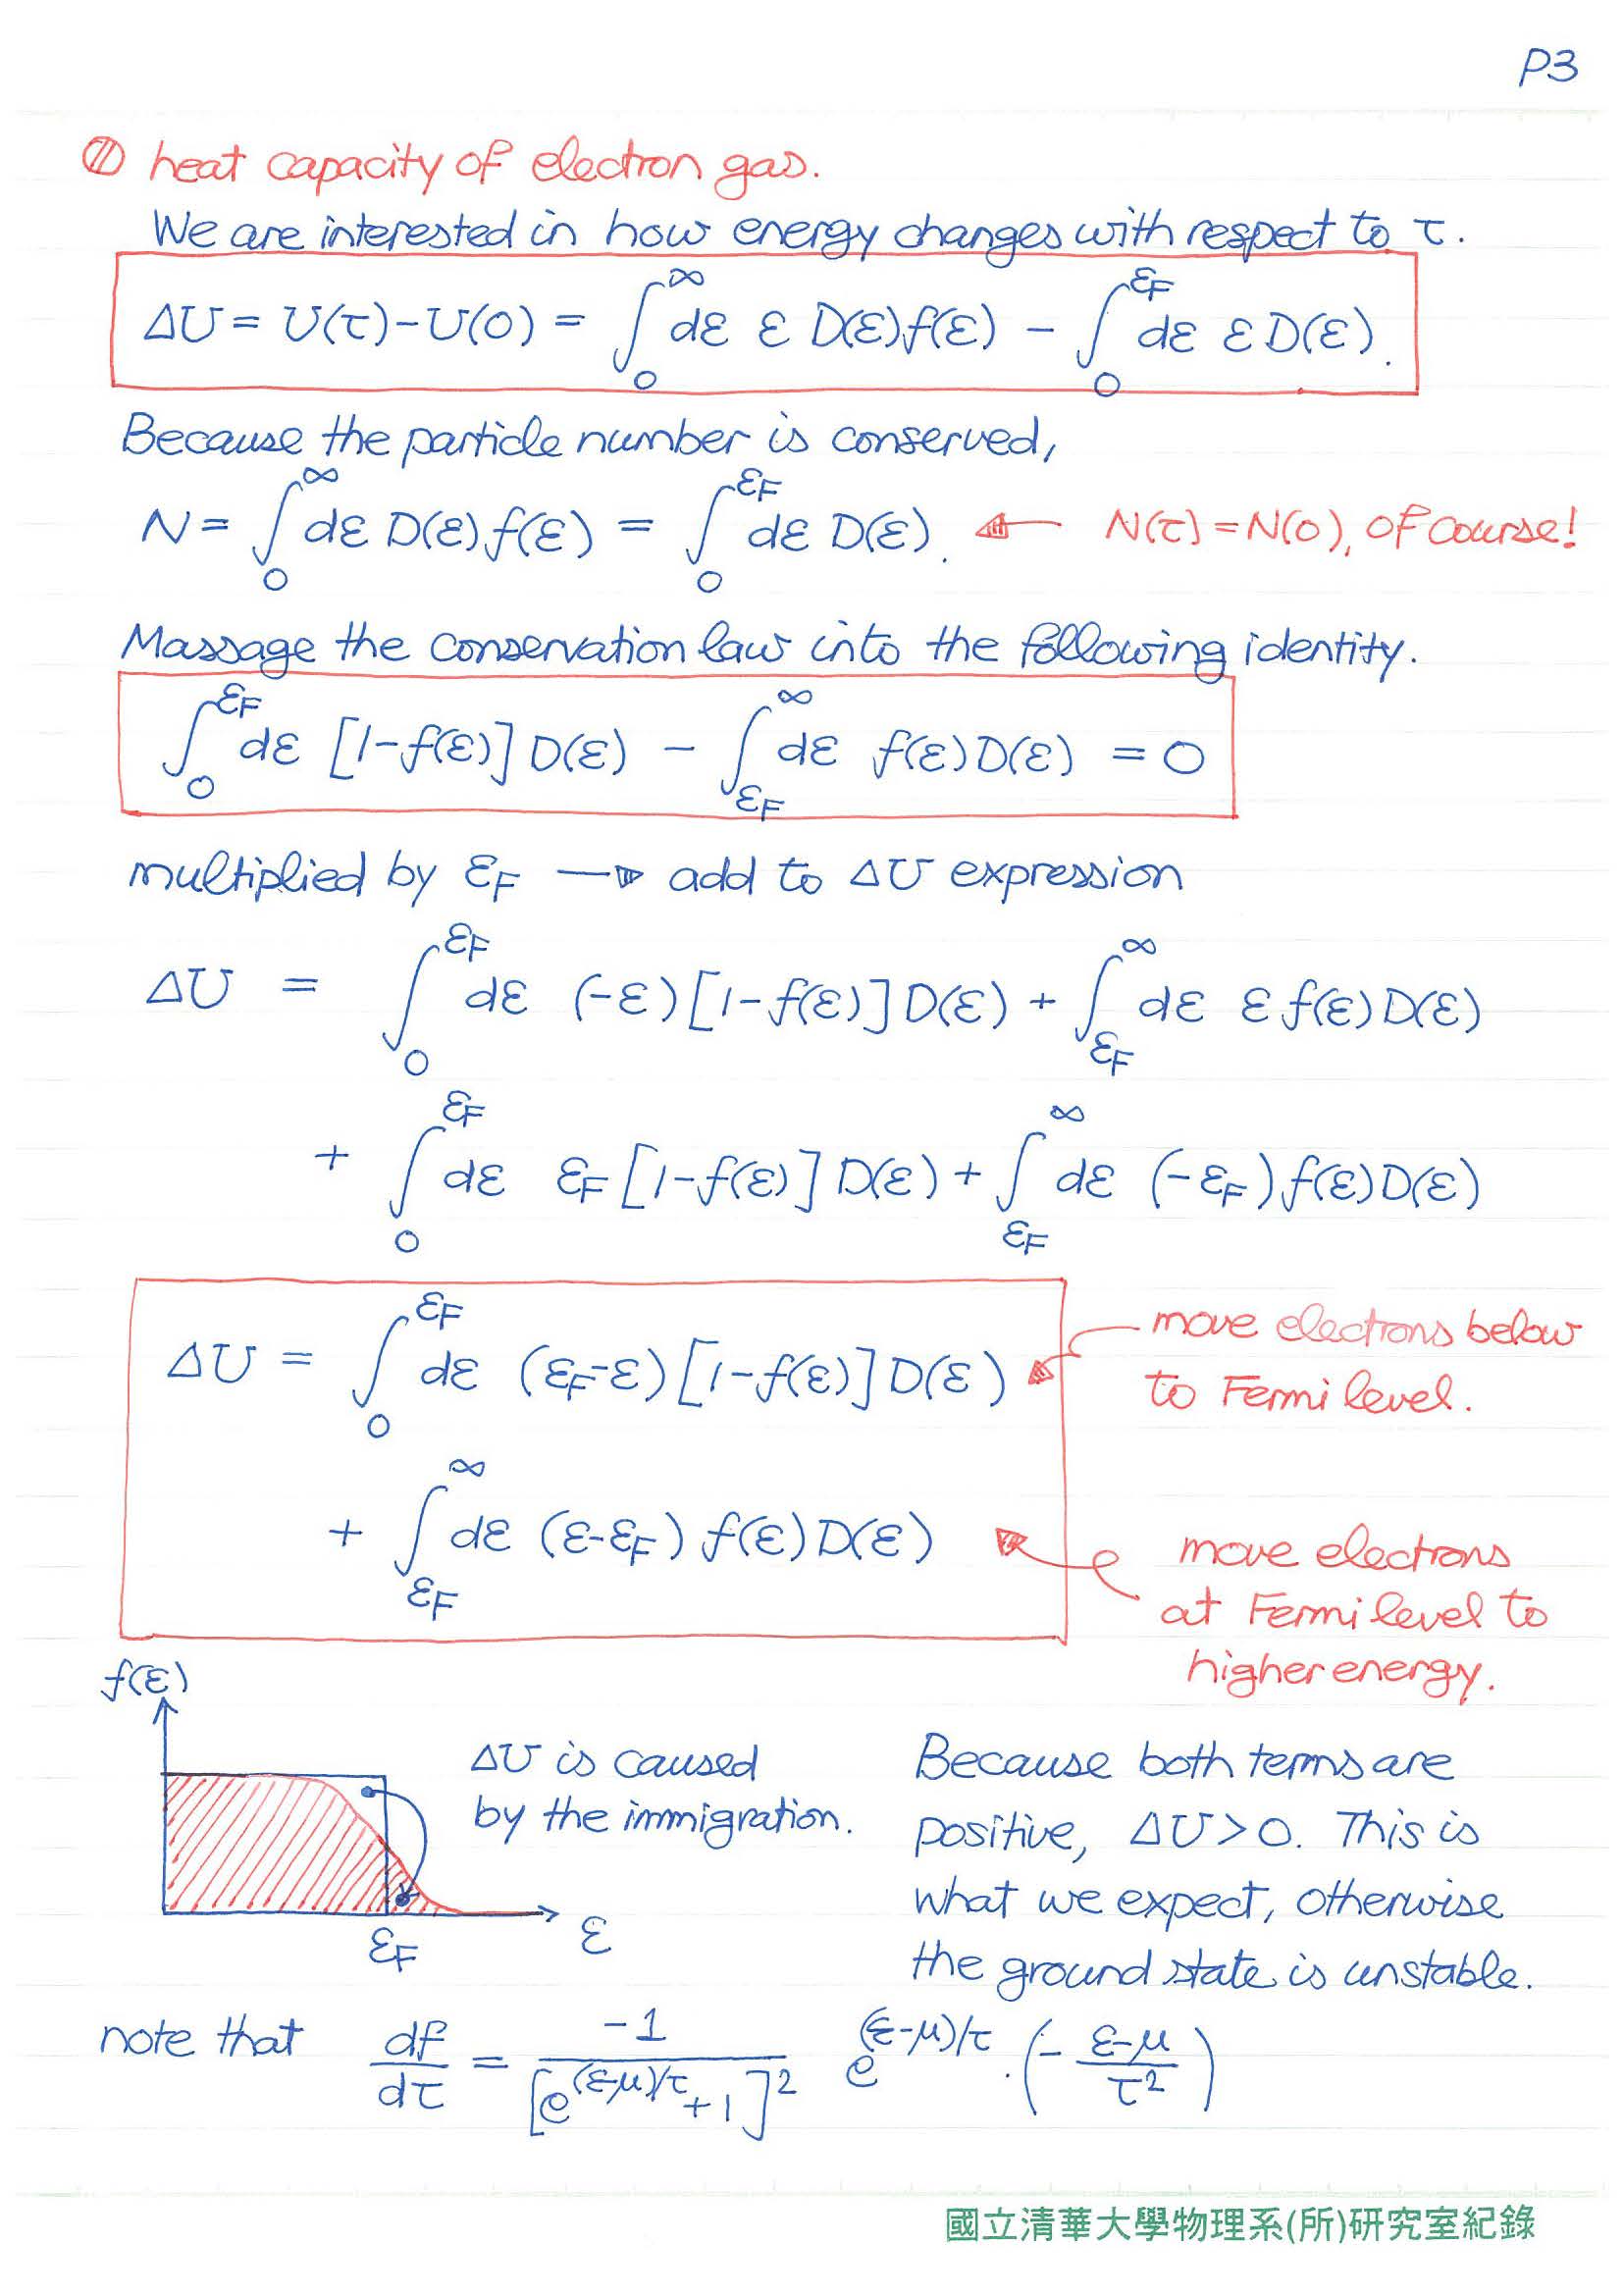 P3
heat capacity of electron gas.
We are interested in how energy changes with respect to τ.
ΔU = U(τ)-U(0) = ∫_0^∞ dε ε D(ε)f(ε) - ∫_0^{ε_F} dε ε D(ε).
Because the particle number is conserved,
N = ∫_0^∞ dε D(ε)f(ε) = ∫_0^{ε_F} dε D(ε). ← N(τ)=N(0), of course!
Massage the conservation law into the following identity.
∫_0^{ε_F} dε [1-f(ε)] D(ε) - ∫_{ε_F}^∞ dε f(ε)D(ε) = 0
multiplied by ε_F → add to ΔU expression
ΔU = ∫_0^{ε_F} dε (-ε)[1-f(ε)]D(ε) + ∫_{ε_F}^∞ dε ε f(ε)D(ε)
+ ∫_0^{ε_F} dε ε_F [1-f(ε)] D(ε) + ∫_{ε_F}^∞ dε (-ε_F) f(ε)D(ε)
ΔU = ∫_0^{ε_F} dε (ε_F-ε)[1-f(ε)]D(ε)
move electrons below
to Fermi level.
+ ∫_{ε_F}^∞ dε (ε-ε_F) f(ε)D(ε)
move electrons
at Fermi level to
higher energy.
f(ε)
ε_F
ε
ΔU is caused
by the immigration.
Because both terms are
positive, ΔU>0. This is
what we expect, otherwise
the ground state is unstable.
note that df/dτ = -1/[e^{(ε-μ)/τ}+1]^2 e^{(ε-μ)/τ} · (- (ε-μ)/τ^2)
國立清華大學物理系(所)研究室紀錄